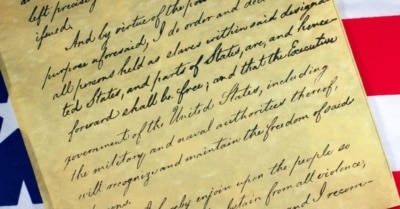 left precisely
ified.
And by virtue of the po
purpose aforesaid, I do order and de
all persons held as slaves within said designa-
ted States, and parts of States, are, and hence-
forward shall be free; and that the Executive
government of the United States, including
the military and naval authorities thereof,
will recognize and maintain the freedom of said
enjoin upon the people so
from all violence;
and I recom-